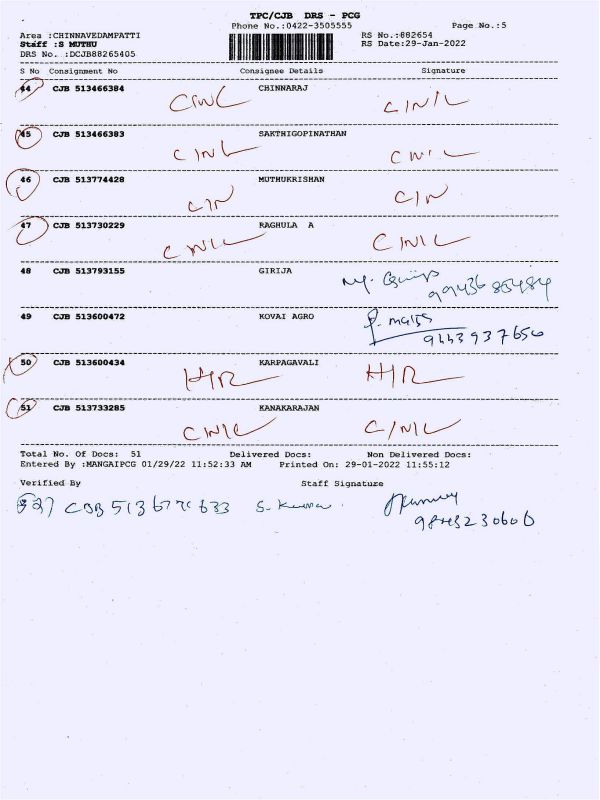 TPC/CJB DRS - PCG
Phone No.:0422-3505555 Page No.:5
Area :CHINNAVEDAMPATTI RS No.:882654
Staff :S MUTHU RS Date:29-Jan-2022
DRS No. :DCJB88265405
S No Consignment No Consignee Details Signature
44 CJB 513466384 CHINNARAJ
CINL CINIL
45 CJB 513466383 SAKTHIGOPINATHAN
CINL CNIL
46 CJB 513774428 MUTHUKRISHAN
CIN CIN
47 CJB 513730229 RAGHULA A
CNIL CINIL
48 CJB 513793155 GIRIJA
49 CJB 513600472 KOVAI AGRO
9443937650
50 CJB 513600434 KARPAGAVALI
HIR HIR
51 CJB 513733285 KANAKARAJAN
CINIL CINIL
Total No. Of Docs: 51 Delivered Docs: Non Delivered Docs:
Entered By :MANGAIPCG 01/29/22 11:52:33 AM Printed On: 29-01-2022 11:55:12
Verified By Staff Signature
CJB 513677 633
9843230606